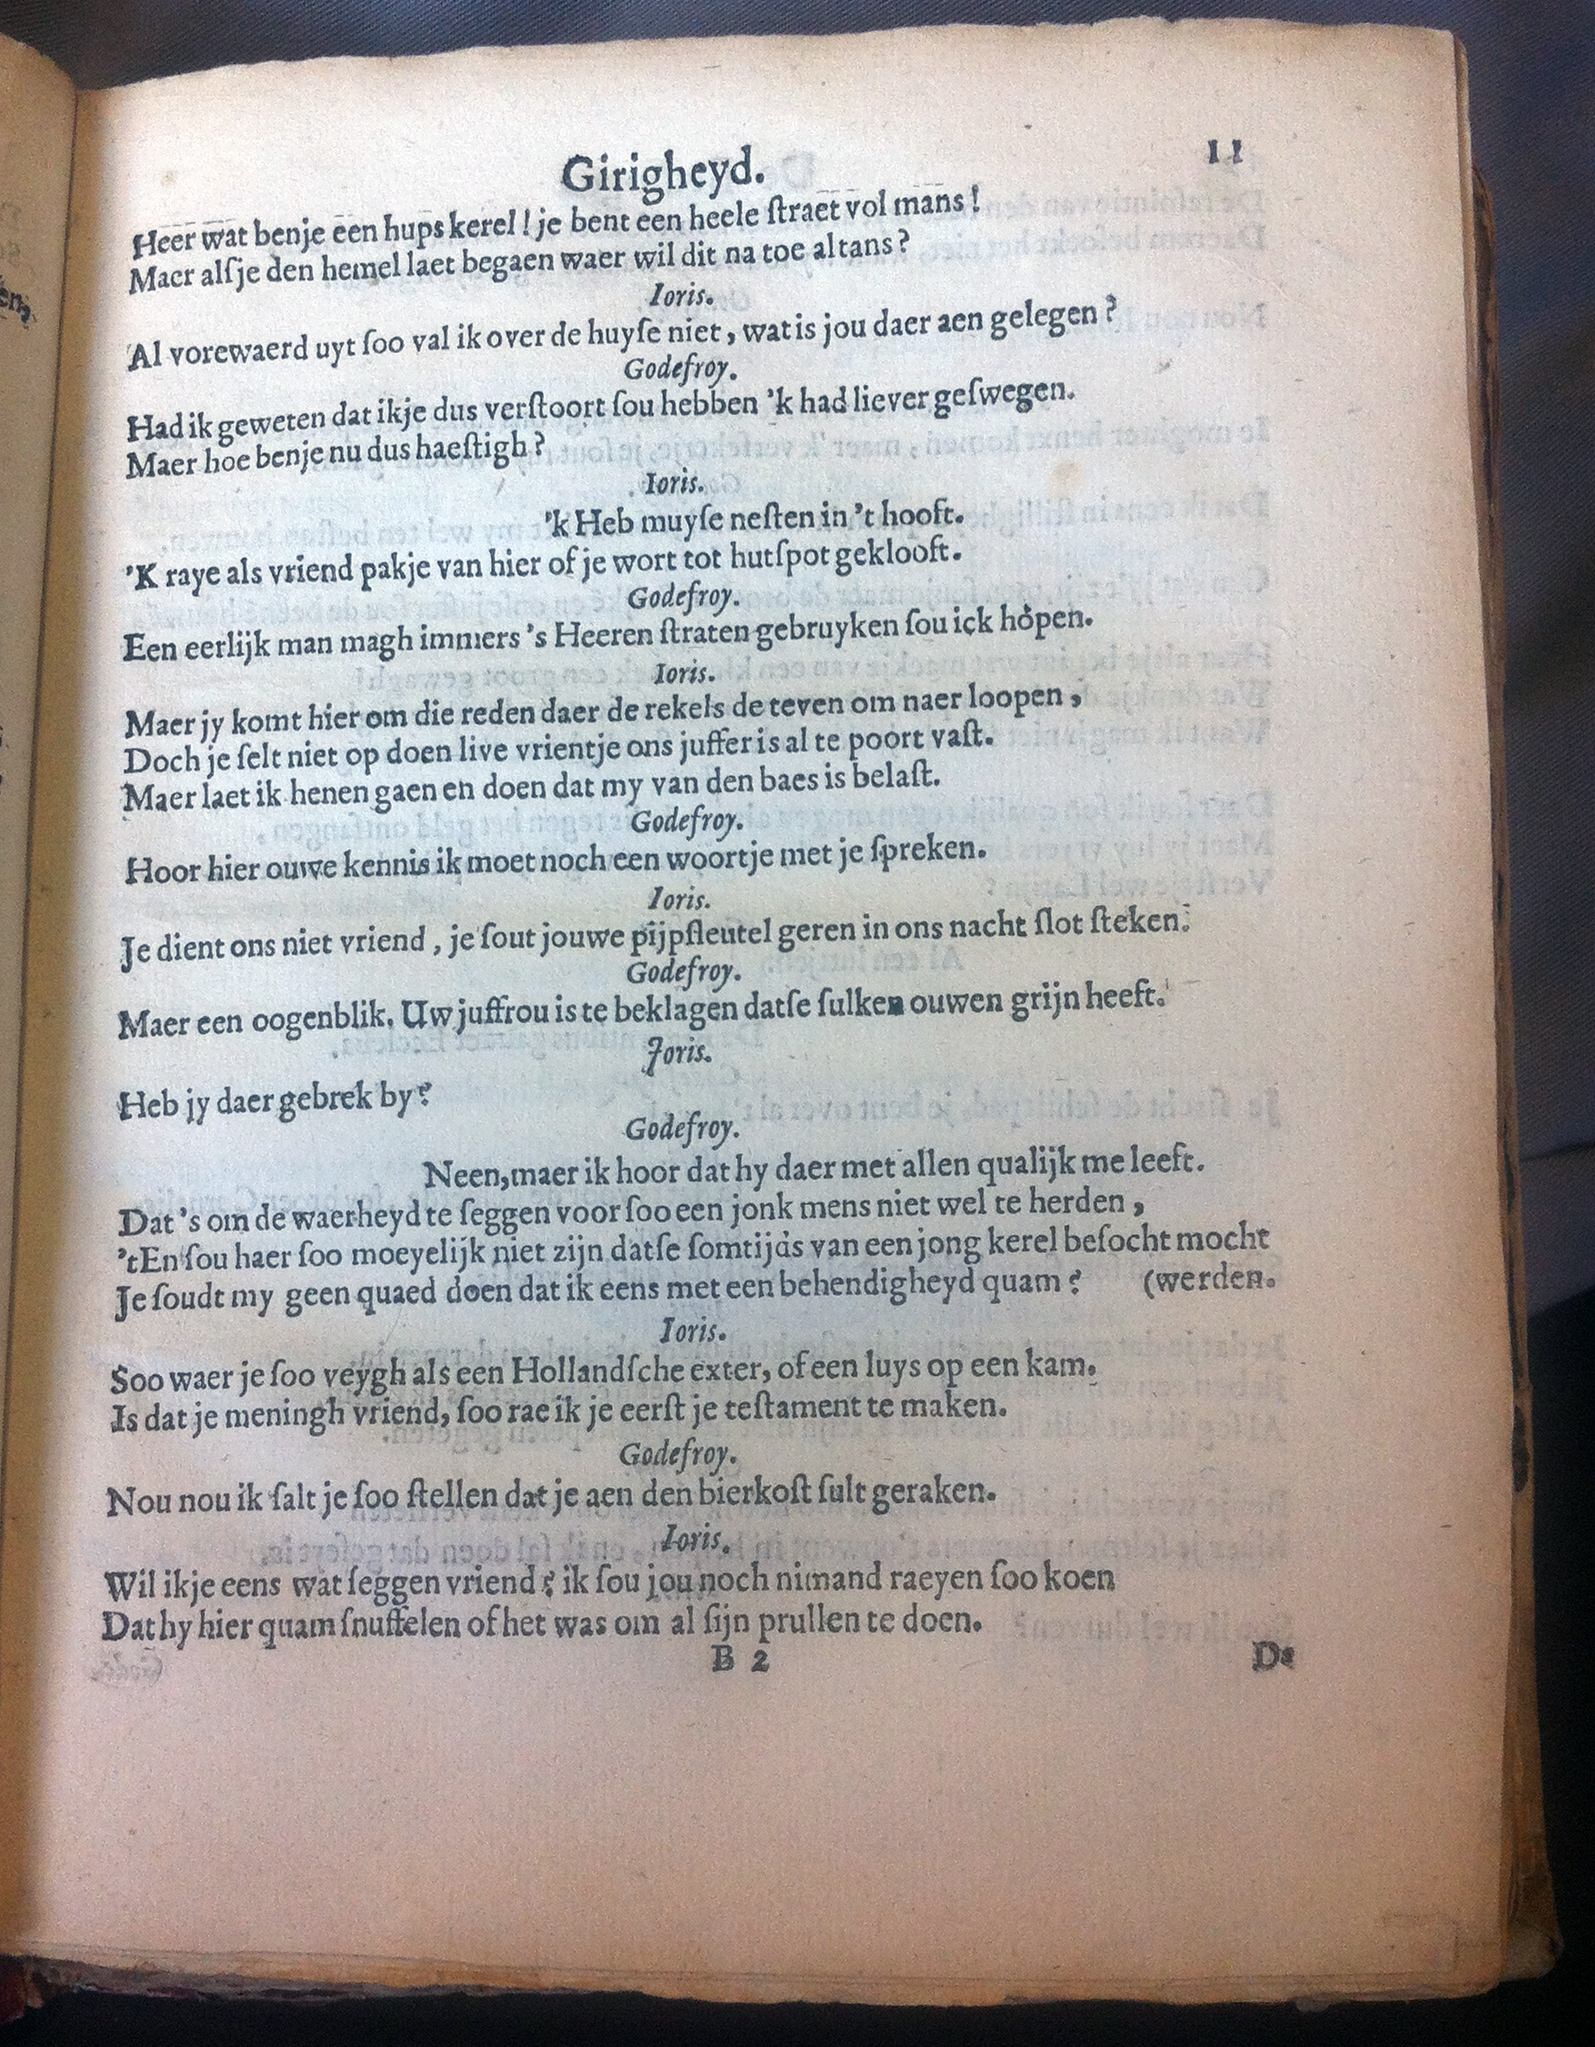 Girigheyd. 11
Heer wat benje een hups kerel! je bent een heele ſtraet vol mans!
Maer alſje den hemel laet begaen waer wil dit na toe altans?
Ioris.
Al vorewaerd uyt ſoo val ik over de huyſe niet, wat is jou daer aen gelegen?
Godefroy.
Had ik geweten dat ikje dus verſtoort ſou hebben 'k had liever geſwegen.
Maer hoe benje nu dus haeſtigh?
Ioris.
'k Heb muyſe neſten in 't hooft.
'K raye als vriend pakje van hier of je wort tot hutſpot geklooft.
Godefroy.
Een eerlijk man magh immers 's Heeren ſtraten gebruyken ſou ick hopen.
Ioris.
Maer jy komt hier om die reden daer de rekels de teven om naer loopen,
Doch je ſelt niet op doen live vrientje ons juffer is al te poort vaſt.
Maer laet ik henen gaen en doen dat my van den baes is belaſt.
Godefroy.
Hoor hier ouwe kennis ik moet noch een woortje met je ſpreken.
Ioris.
Je dient ons niet vriend, je ſout jouwe pijpſleutel geren in ons nacht ſlot ſteken.
Godefroy.
Maer een oogenblik. Uw juffrou is te beklagen datſe ſulken ouwen grijn heeft.
Joris.
Heb jy daer gebrek by?
Godefroy.
Neen, maer ik hoor dat hy daer met allen qualijk me leeft.
Dat 's om de waerheyd te ſeggen voor ſoo een jonk mens niet wel te herden,
't En ſou haer ſoo moeyelijk niet zijn datſe ſomtijds van een jong kerel beſocht mocht
Je ſoudt my geen quaed doen dat ik eens met een behendigheyd quam? (werden.
Ioris.
Soo waer je ſoo veygh als een Hollandſche exter, of een luys op een kam.
Is dat je meningh vriend, ſoo rae ik je eerſt je teſtament te maken.
Godefroy.
Nou nou ik ſalt je ſoo ſtellen dat je aen den bierkoſt ſult geraken.
Ioris.
Wil ikje eens wat ſeggen vriend? ik ſou jou noch nimand raeyen ſoo koen
Dat hy hier quam ſnuffelen of het was om al ſijn prullen te doen.
B 2 De